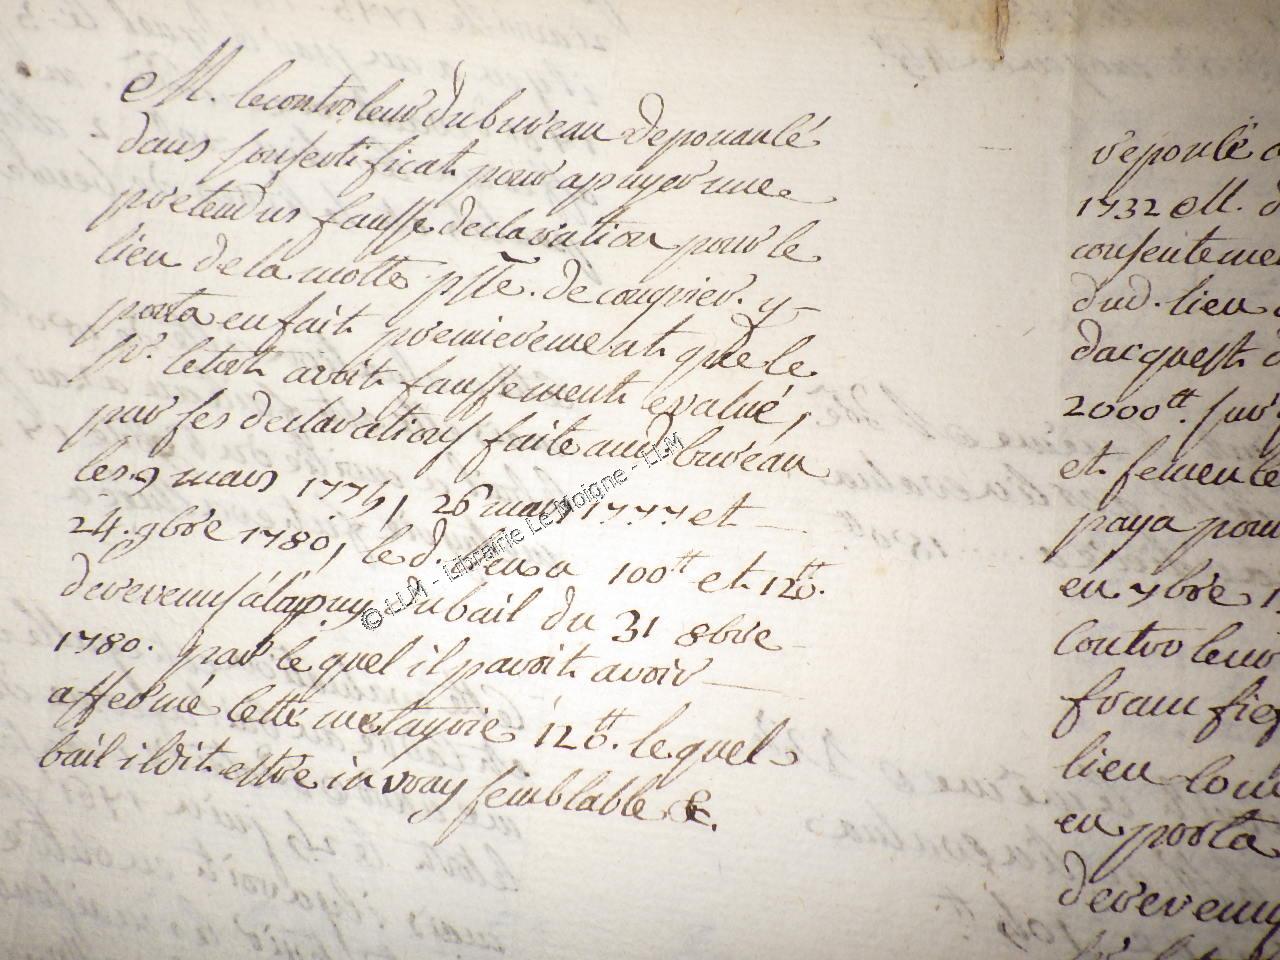 M. lecontroleur du bureau de pouancé
dans son sertificat pour apuyer une
pretendus fausse declaration pour le
lieu de la motte psse. de congrier. y
porta en fait premierement que le
sr. letort avoit faussement evalué,
par ses declarations faite aud bureau
les 9 mars 1774, 26 mars 1777 et
24. 9bre 1780, le d. lieu a 100tt et 120tt.
de revenus à lapuy du bail du 31 8bre
1780. par le quel il paroit avoir
affermé cette metayrie 120tt. le quel
bail il dit estre in vray semblable &.
reporté
1732 M. d
consenteme
dud. lieu
dacquest d
2000tt. sur
et semence
paya pour
en 7bre 1
Controleur
franc fief
lieu
en porta
de revenu
© LLM - Librairie Le Moigne - LLM